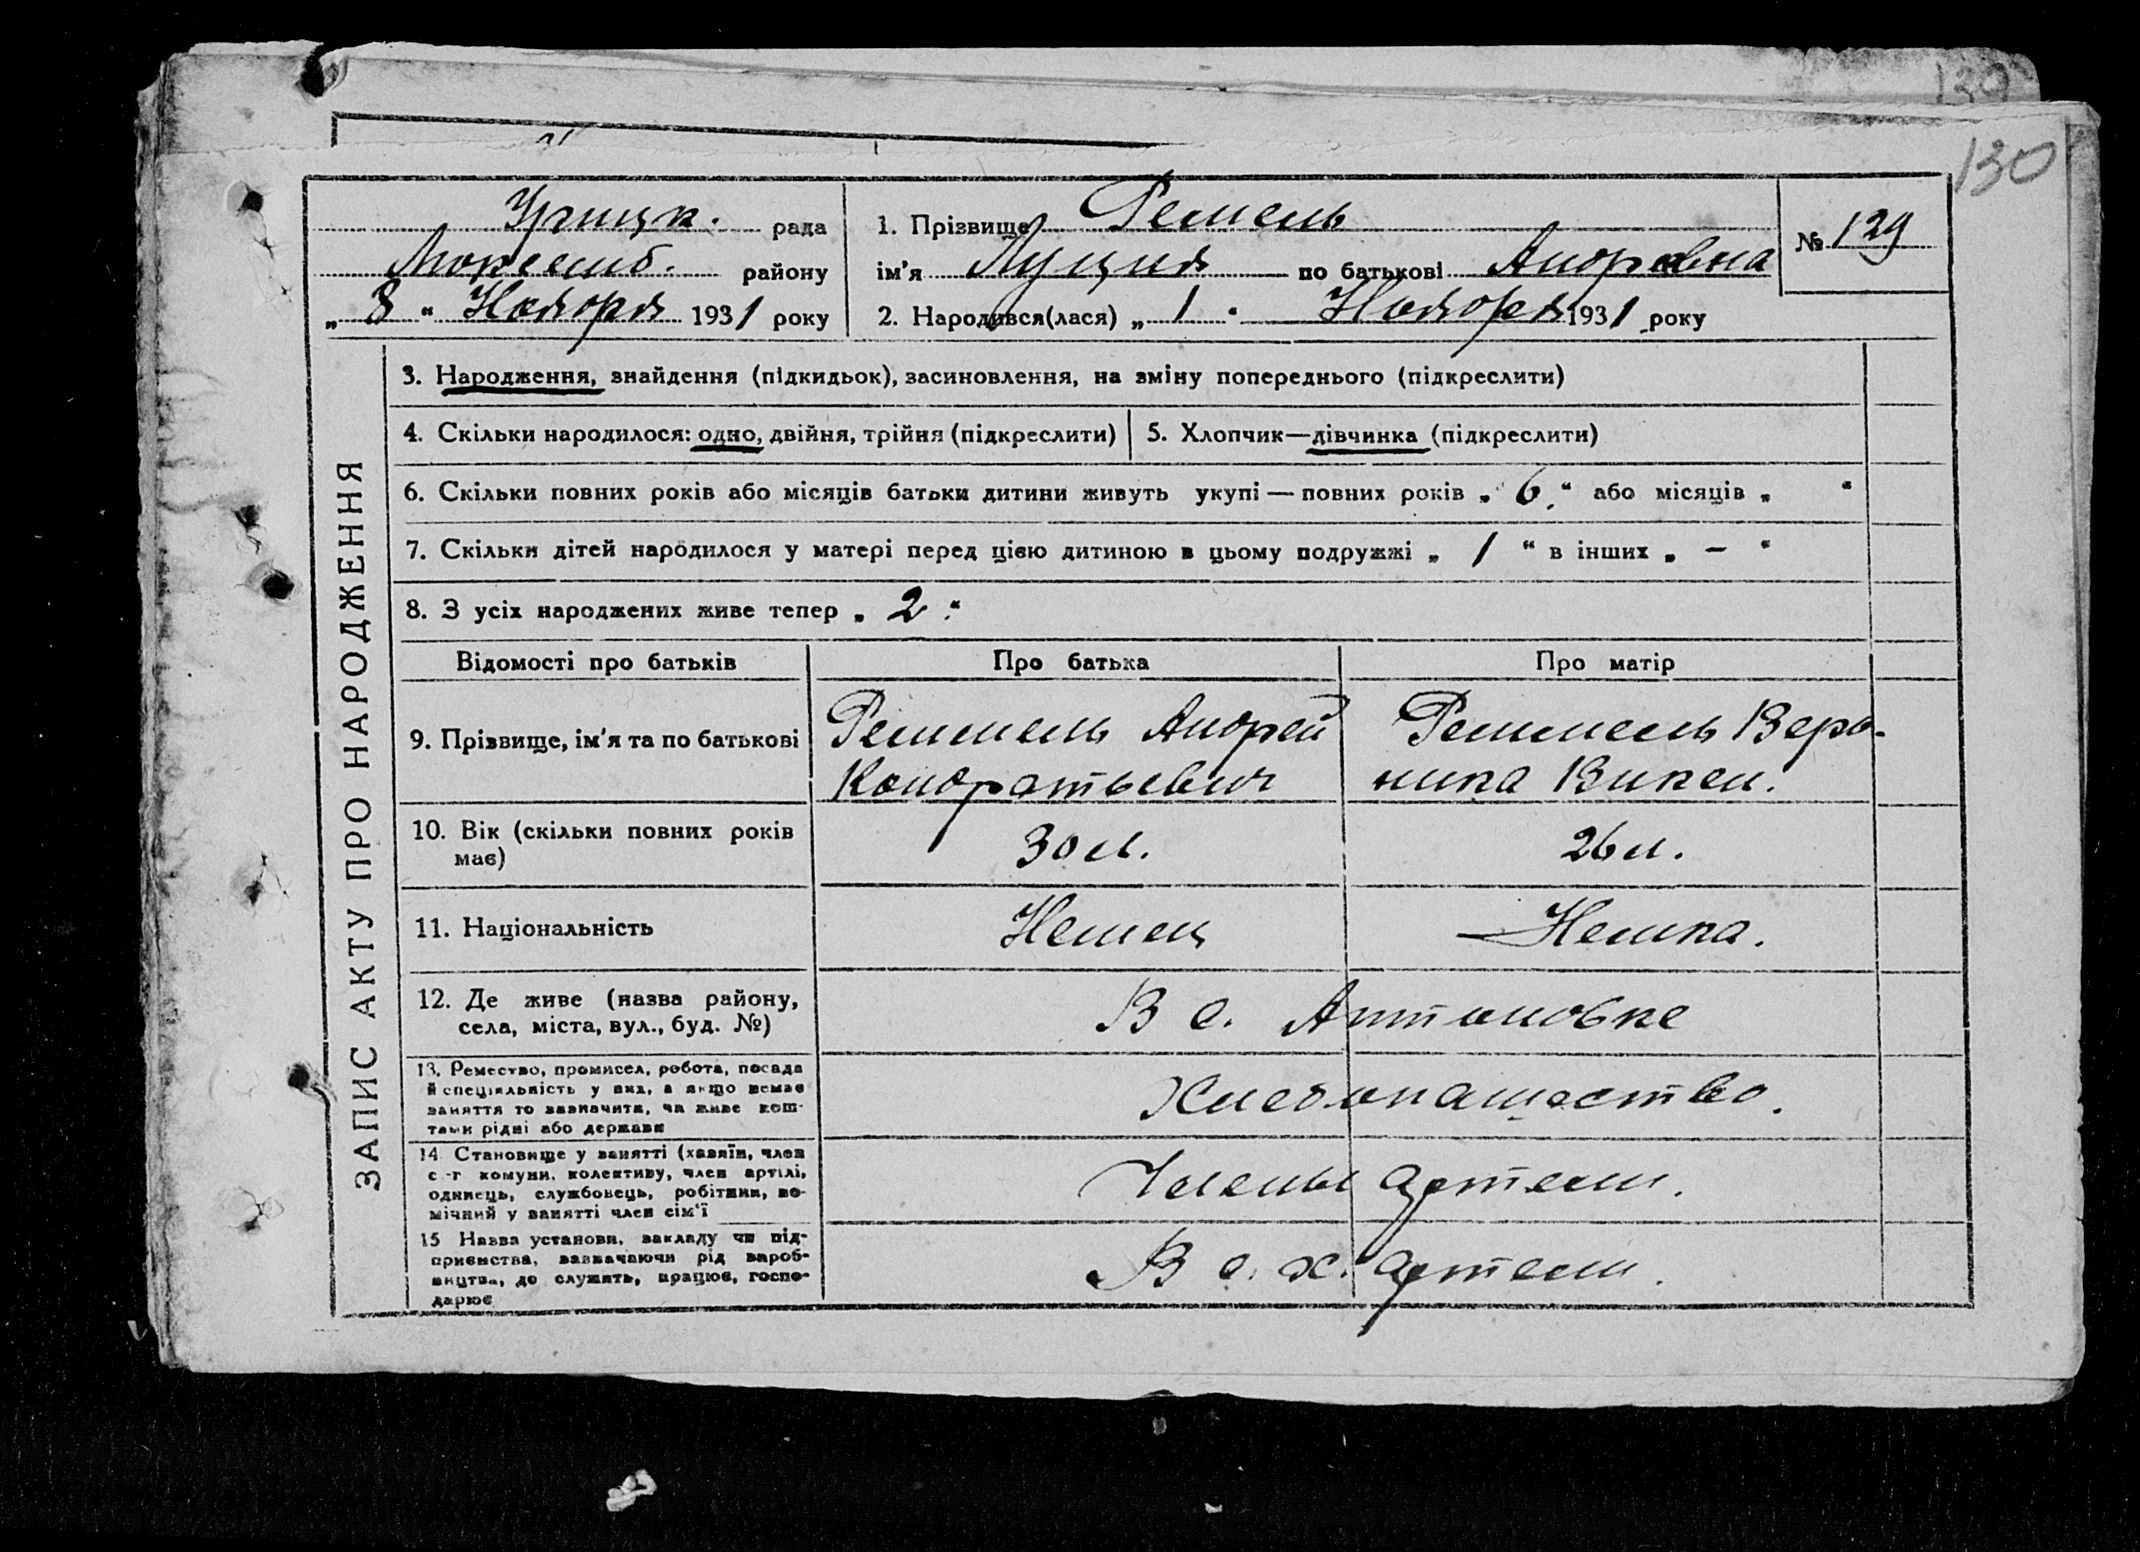 130
130
Урицк. рада
Люксемб. району
„ 8 “ Ноября 1931 року
1. Прізвище Ремель
ім'я Луция по батькові Андреевна
2. Народився(лася) „ 1 “ Ноября 1931 року
№ 129
ЗАПИС АКТУ ПРО НАРОДЖЕННЯ
3. Народження, знайдення (підкидьок), засиновлення, на зміну попереднього (підкреслити)
4. Скільки народилося: одно, двійня, трійня (підкреслити)
5. Хлопчик—дівчинка (підкреслити)
6. Скільки повних років або місяців батьки дитини живуть укупі — повних років „ 6. “ або місяців „ “
7. Скільки дітей народилося у матері перед цією дитиною в цьому подружжі „ 1 “ в інших „ – “
8. З усіх народжених живе тепер „ 2 “
Відомості про батьків Про батька Про матір
9. Прізвище, ім'я та по батькові
Реммель Андрей
Кондратьевич
Реммель Веро-
ника
10. Вік (скільки повних років
має)
30 л.
26 л.
11. Національність
Немец
Немка.
12. Де живе (назва району,
села, міста, вул., буд. №)
В с. Антоновке
13. Ремество, промисел, робота, посада
й спеціяльність у них, а якщо немає
заняття то зазначити, чи живе кош-
тами рідні або держави
Хлебопашество.
14 Становище у занятті (хазяїн, член
с-г комуни, колективу, член артілі,
одинець, службовець, робітник, по-
мічний у занятті член сім'ї
Члены артели.
15 Назва установи, закладу чи під-
приємства, зазначаючи рід вироб-
ництва, де служить, працює, госпо-
дарює
В с. х. артели.